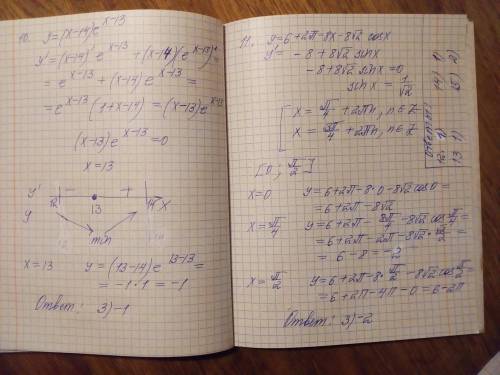 10. y=(x-14)e^{x-13}
y'=(x-14)'e^{x-13}+(x-14)(e^{x-13})'=
=e^{x-13}+(x-14)e^{x-13}=
=e^{x-13}(1+x-14)=(x-13)e^{x-13}
(x-13)e^{x-13}=0
x=13
y' - +
12 13 14 x
y
min
x=13 y=(13-14)e^{13-13}=
=-1·1=-1
Ответ: 3)-1
11. y=6+2π-8x-8√2 cosx
y'=-8+8√2 sinx
-8+8√2 sinx=0
sinx=1/√2
x=π/4+2πn, n∈Z
x=3π/4+2πn, n∈Z
[0; π/2]
x=0 y=6+2π-8·0-8√2cos0=
=6+2π-8√2
x=π/4 y=6+2π-8π/4-8√2cosπ/4=
=6+2π-2π-8√2·√2/2=
=6-8=-2
x=π/2 y=6+2π-8·π/2-8√2cosπ/2=
=6+2π-4π-0=6-2π
Ответ: 3)-2
Ответы:
12. 1)
13 1)
14) 1)
15) 2)